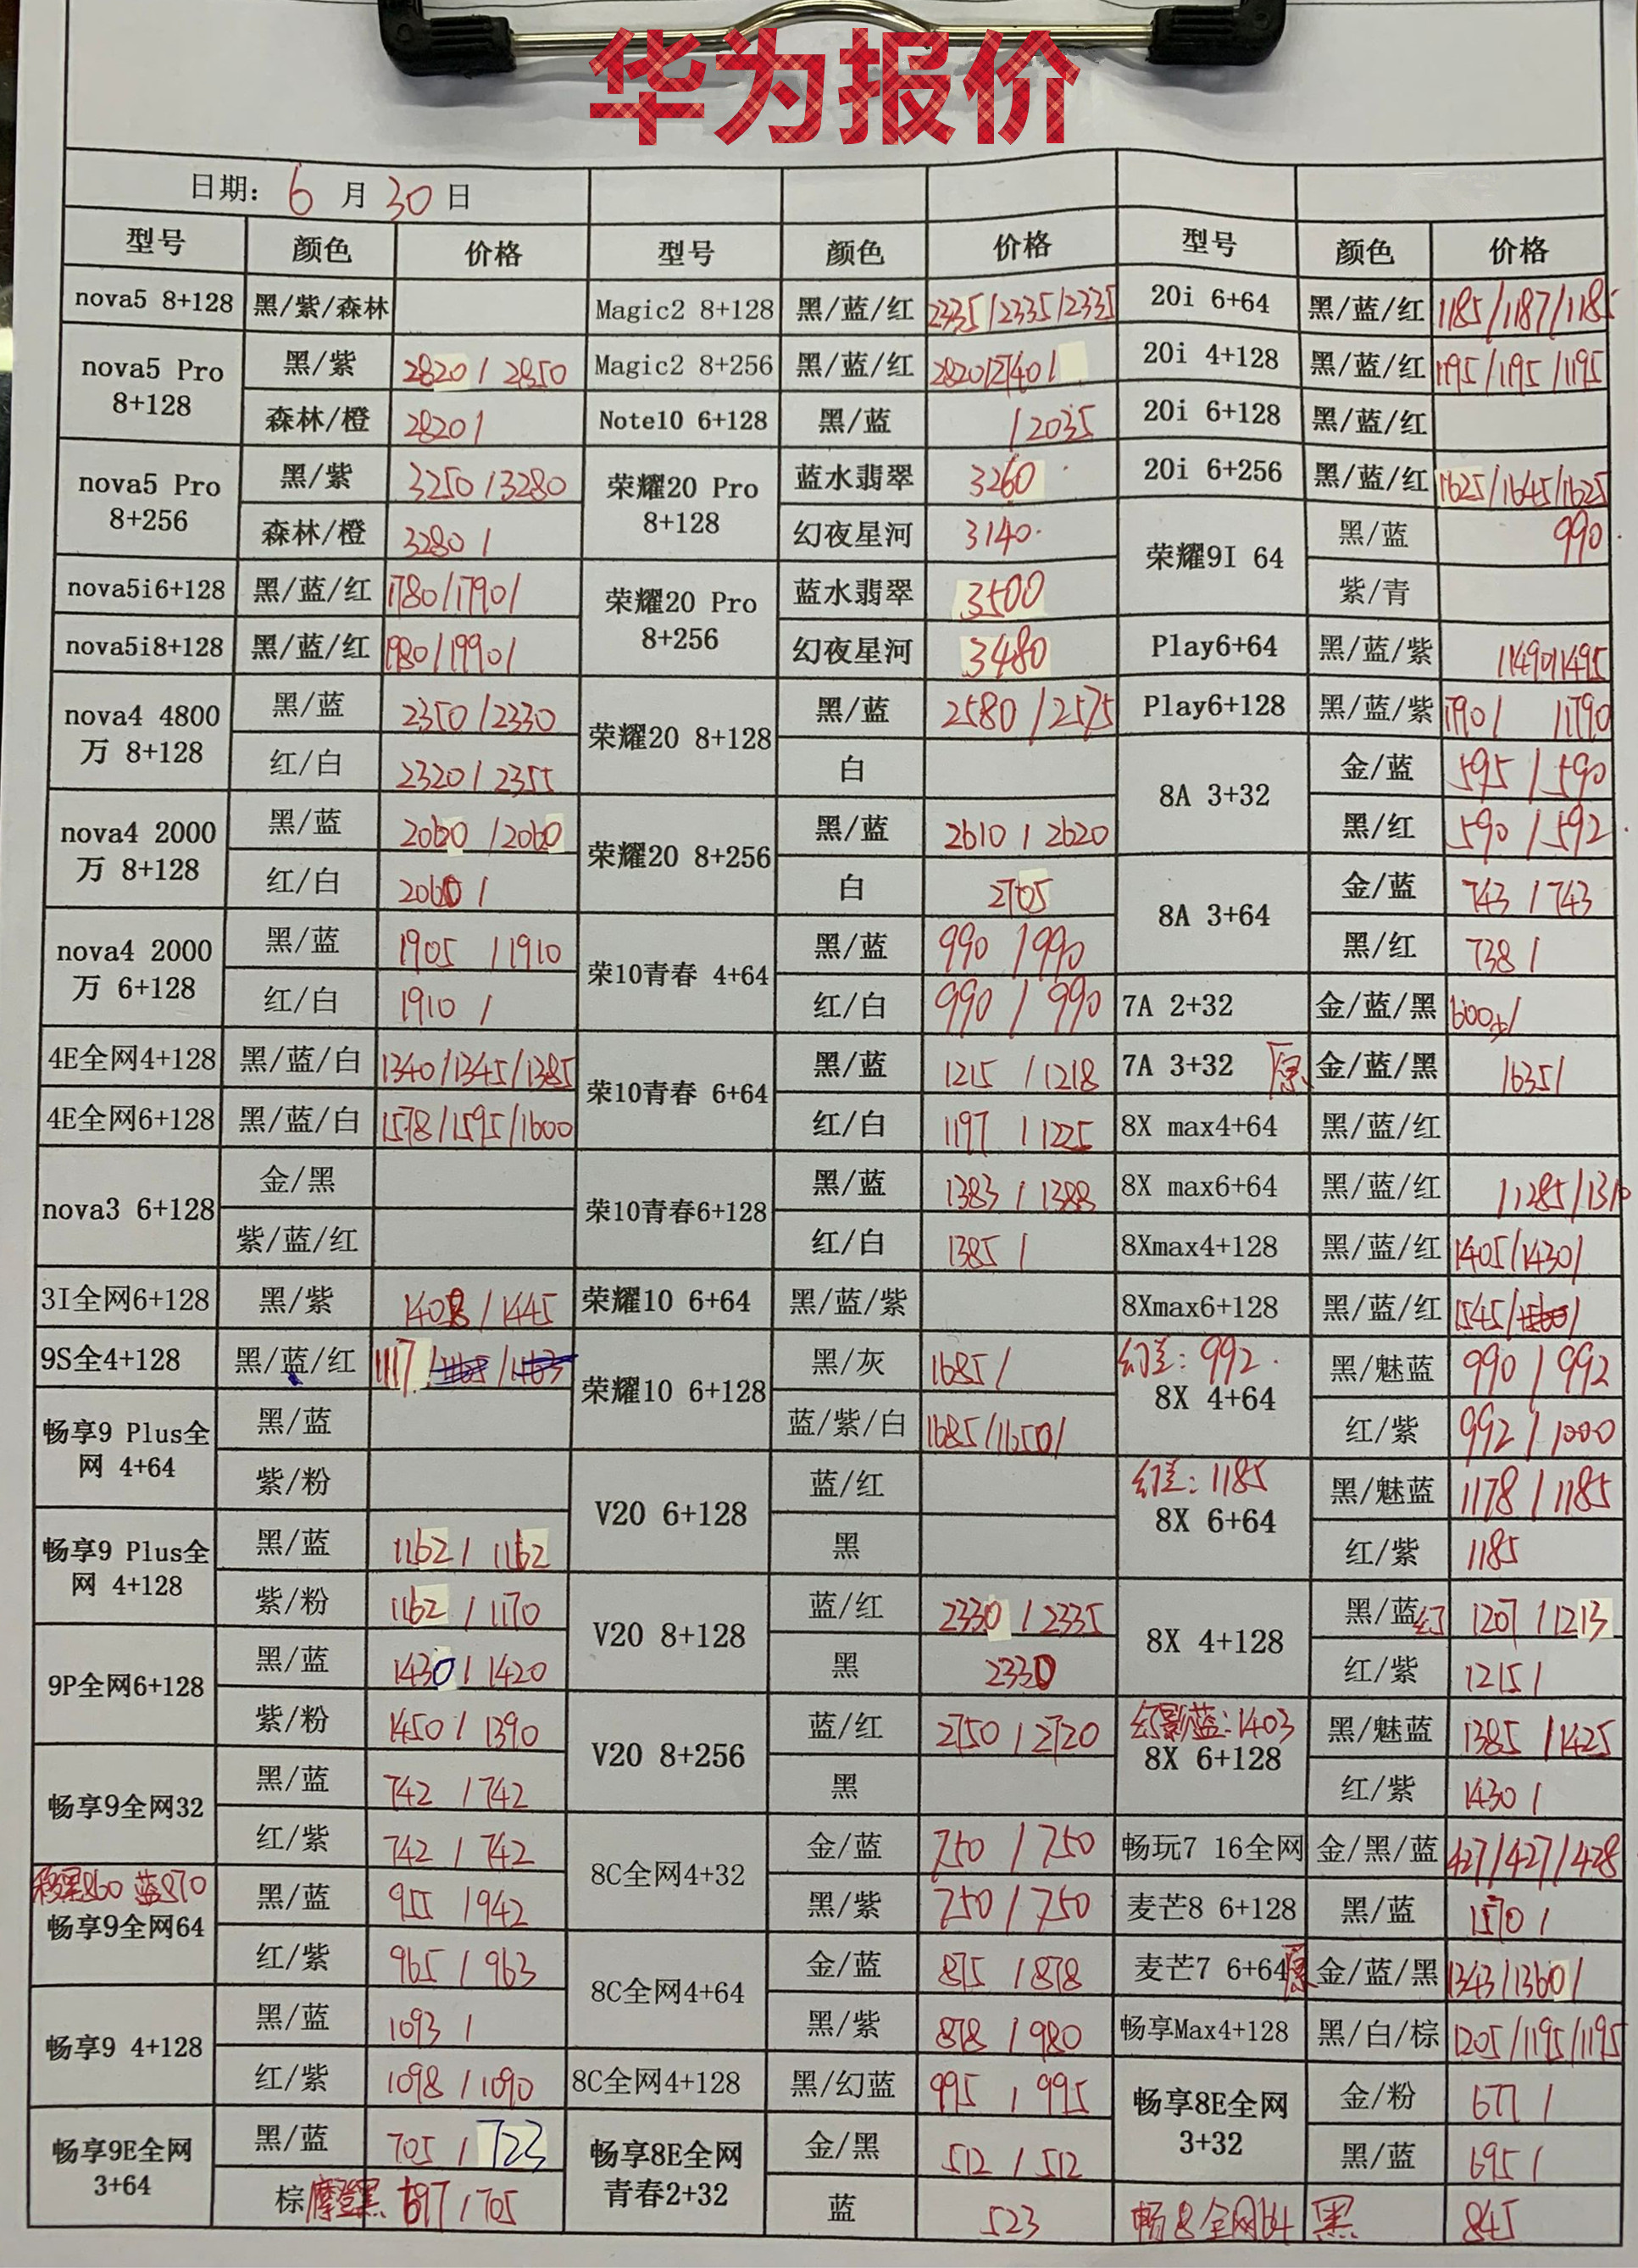 华为报价
日期: 6 月 30 日
型号 颜色 价格 型号 颜色 价格 型号 颜色 价格
nova5 8+128 黑/紫/森林 Magic2 8+128 黑/蓝/红 2335/2335/2335 20i 6+64 黑/蓝/红 1185/1187/118
nova5 Pro 8+128 黑/紫 2820/2850 Magic2 8+256 黑/蓝/红 2820/2740/ 20i 4+128 黑/蓝/红 1195/1195/1195
森林/橙 2820/ Note10 6+128 黑/蓝 /2035 20i 6+128 黑/蓝/红
nova5 Pro 8+256 黑/紫 3250/3280 荣耀20 Pro 8+128 蓝水翡翠 3260 20i 6+256 黑/蓝/红 1625/1645/1625
森林/橙 3280/ 幻夜星河 3140 荣耀9I 64 黑/蓝 990
nova5i6+128 黑/蓝/红 1780/1790/ 荣耀20 Pro 8+256 蓝水翡翠 3500 紫/青
nova5i8+128 黑/蓝/红 1980/1990/ 幻夜星河 3480 Play6+64 黑/蓝/紫 /1490/1495
nova4 4800万 8+128 黑/蓝 2350/2330 荣耀20 8+128 黑/蓝 2580/2575 Play6+128 黑/蓝/紫 1790/ /1790
红/白 2320/2355 白 8A 3+32 金/蓝 595/590
nova4 2000万 8+128 黑/蓝 2060/2060 荣耀20 8+256 黑/蓝 2610/2620 黑/红 590/592
红/白 2060/ 白 2705 8A 3+64 金/蓝 743/743
nova4 2000万 6+128 黑/蓝 1905/1910 荣10青春 4+64 黑/蓝 990/990 黑/红 738/
红/白 1910/ 红/白 990/990 7A 2+32 金/蓝/黑 600/
4E全网4+128 黑/蓝/白 1340/1345/1385 荣10青春 6+64 黑/蓝 1215/1218 7A 3+32 原 金/蓝/黑 /635/
4E全网6+128 黑/蓝/白 1578/1595/1600 红/白 1197/1225 8X max4+64 黑/蓝/红
nova3 6+128 金/黑 荣10青春6+128 黑/蓝 1383/1388 8X max6+64 黑/蓝/红 /1285/1310
紫/蓝/红 红/白 1385/ 8Xmax4+128 黑/蓝/红 1405/1430/
3I全网6+128 黑/紫 1408/1445 荣耀10 6+64 黑/蓝/紫 8Xmax6+128 黑/蓝/红 1545/
9S全4+128 黑/蓝/红 1117 荣耀10 6+128 黑/灰 1685/ 幻差: 992 8X 4+64 黑/魅蓝 990/992
畅享9 Plus全网 4+64 黑/蓝 蓝/紫/白 1685/1650/ 红/紫 992/1000
紫/粉 V20 6+128 蓝/红 幻差: 1185 8X 6+64 黑/魅蓝 1178/1185
畅享9 Plus全网 4+128 黑/蓝 1162/1162 黑 红/紫 1185
紫/粉 1162/1170 V20 8+128 蓝/红 2330/2335 8X 4+128 黑/蓝幻 1207/1213
9P全网6+128 黑/蓝 1430/1420 黑 2330 红/紫 1215/
紫/粉 1450/1390 V20 8+256 蓝/红 2750/2720 幻影蓝:1403 8X 6+128 黑/魅蓝 1385/1425
畅享9全网32 黑/蓝 742/742 黑 红/紫 1430/
红/紫 742/742 8C全网4+32 金/蓝 750/750 畅玩7 16全网 金/黑/蓝 427/427/428
860 蓝870 畅享9全网64 黑/蓝 955/942 黑/紫 750/750 麦芒8 6+128 黑/蓝 1570/
红/紫 965/963 8C全网4+64 金/蓝 875/878 麦芒7 6+64 原 金/蓝/黑 1343/1360/
畅享9 4+128 黑/蓝 1093/ 黑/紫 878/980 畅享Max4+128 黑/白/棕 1205/1195/1195
红/紫 1098/1090 8C全网4+128 黑/幻蓝 995/995 畅享8E全网 3+32 金/粉 677/
畅享9E全网 3+64 黑/蓝 705/723 畅享8E全网青春2+32 金/黑 512/512 黑/蓝 695/
棕摩登黑 697/705 蓝 523 畅8全网64 黑 845